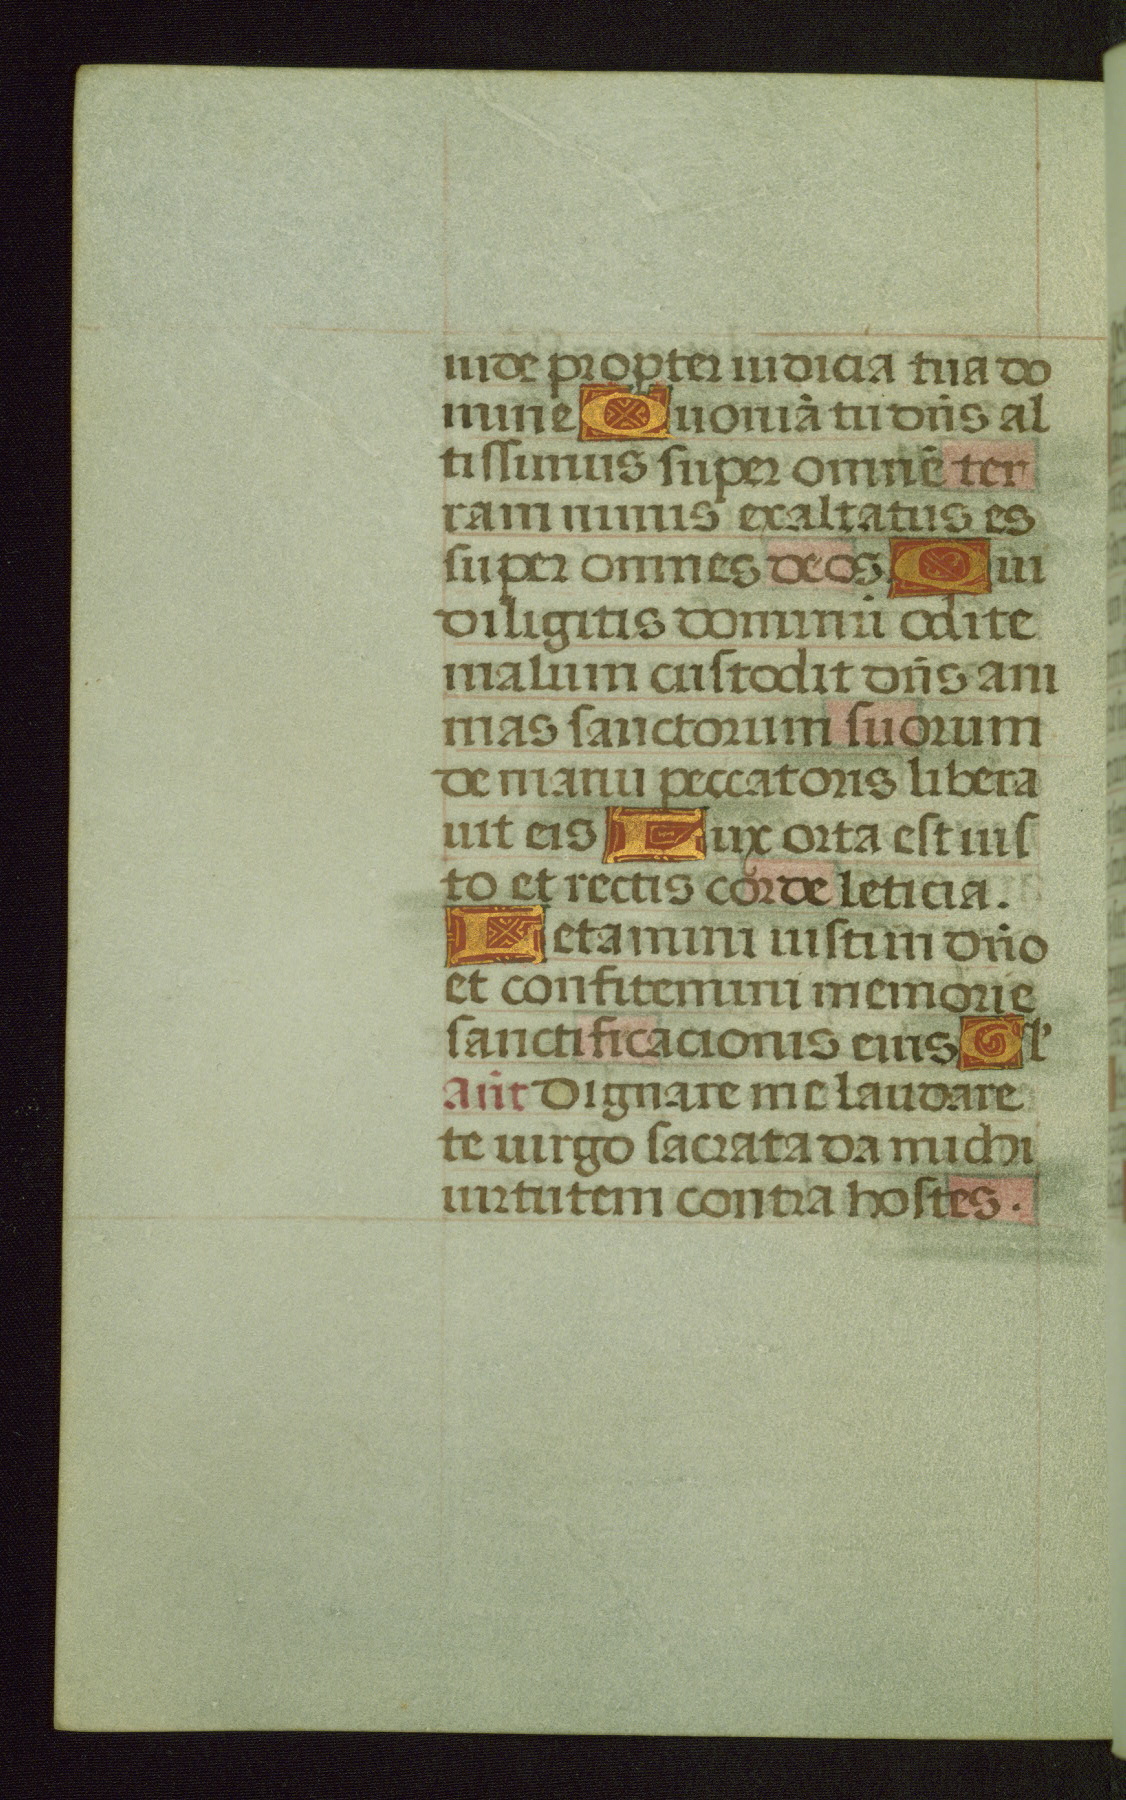 iude propter iudicia tua do
mine Quoniā tu dn̄s al
tissimus super omnē ter
ram nimis exaltatus es
super omnes deos. Qui
diligitis dominū odite
malum custodit dn̄s ani
mas sanctorum suorum
de manu peccatoris libera
uit eis Lux orta est ius
to et rectis corde leticia.
Letamini iusti in dn̄o
et confitemini memorie
sanctificacionis eius Gl'
an̄t Dignare me laudare
te uirgo sacrata da michi
uirtutem contra hostes.